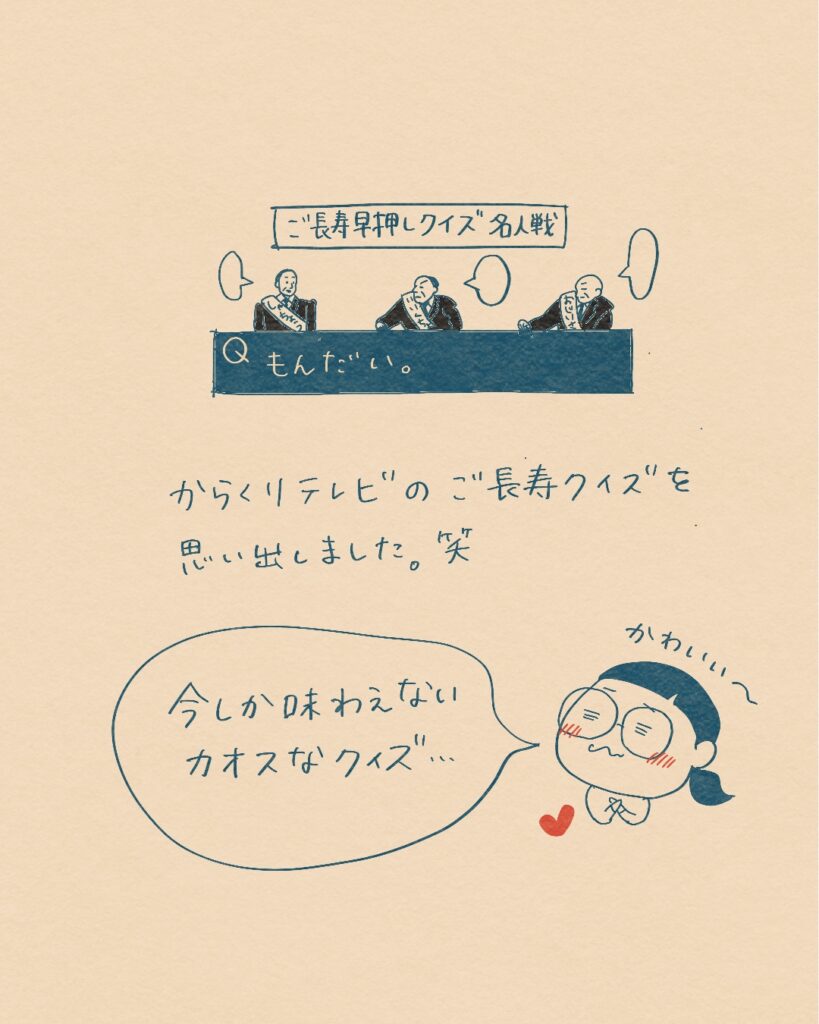 ご長寿早押しクイズ名人戦
Q もんだい。
からくりテレビのご長寿クイズを
思い出しました。笑
かわいい〜
今しか味わえない
カオスなクイズ…